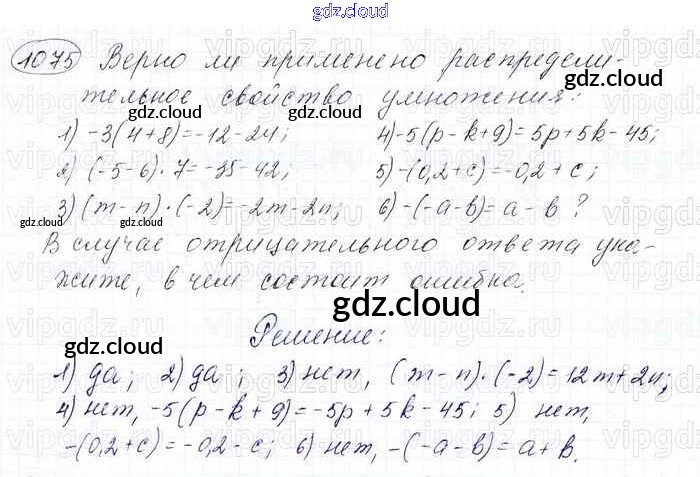 gdz.cloud
1075 Верно ли применено распредели-
gdz.cloud
тельное свойство умножения:
gdz.cloud
1) -3(4+8)=-12-24; 4) -5(p-k+9)=5p+5k-45;
2) (-5-6)·7=-35-42; 5) -(0,2+c)=-0,2+c;
gdz.cloud
3) (m-n)·(-2)=-2m-2n; 6) -(-a-b)=a-b?
gdz.cloud
В случае отрицательного ответа ука-
gdz.cloud
жите, в чем состоит ошибка.
gdz.cloud
Решение:
gdz.cloud
1) да; 2) да; 3) нет, (m-n)·(-2)=12m+2n;
4) нет, -5(p-k+9)=-5p+5k-45; 5) нет,
-(0,2+c)=-0,2-c; 6) нет, -(-a-b)=a+b.